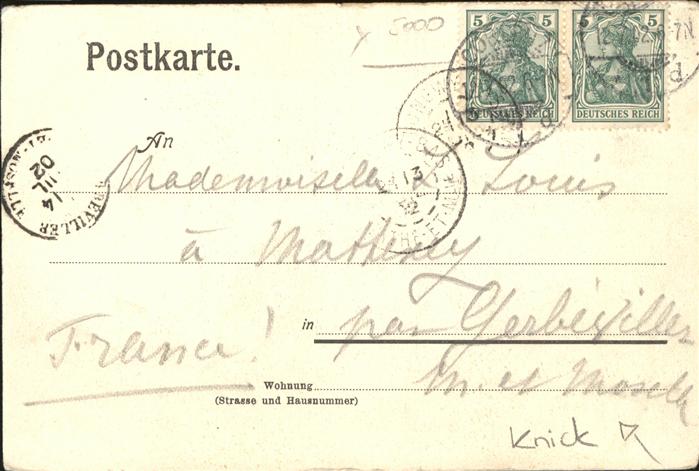 5000
5 5 5 5
DEUTSCHES REICH DEUTSCHES REICH
Postkarte.
An
Mademoiselle L. Louis
à Mattexey
in par Gerbéviller
France!
Wohnung
M. et Moselle
(Strasse und Hausnummer)
14
02
Knick